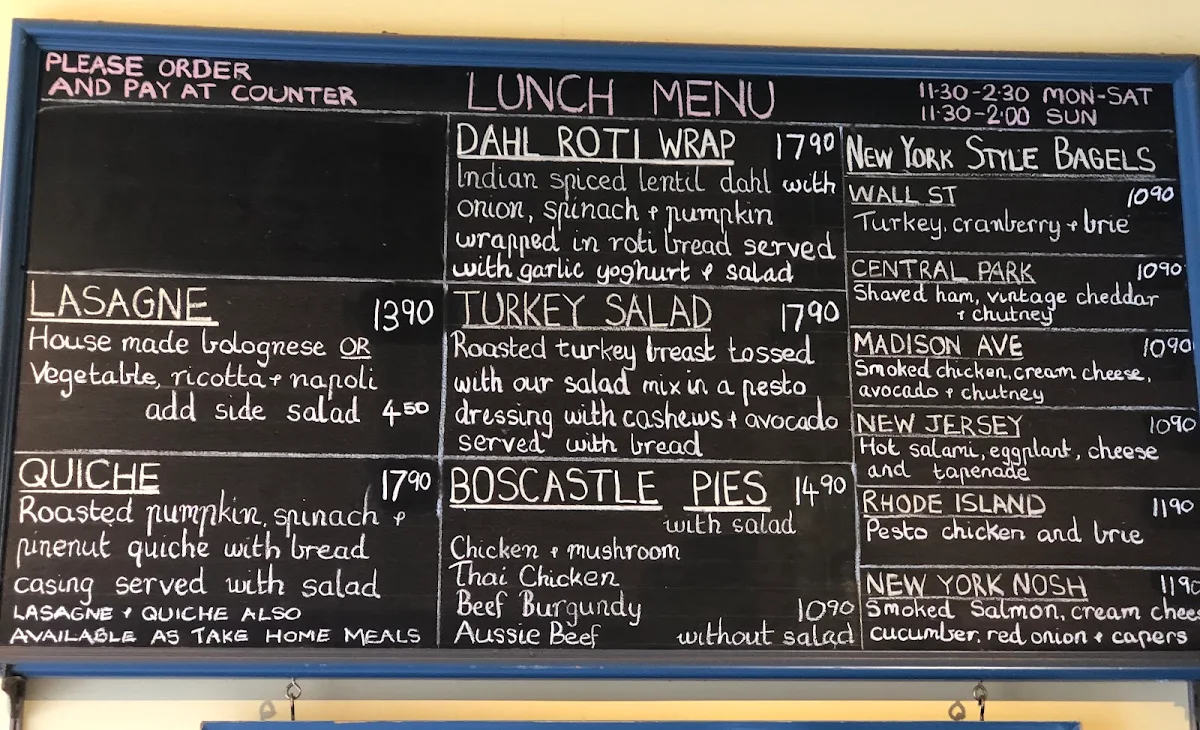 PLEASE ORDER
AND PAY AT COUNTER
LUNCH MENU
11·30-2·30 MON-SAT
11·30-2·00 SUN
LASAGNE 1390
House made bolognese OR
Vegetable, ricotta + napoli
add side salad 450
QUICHE 1790
Roasted pumpkin, spinach +
pinenut quiche with bread
casing served with salad
LASAGNE + QUICHE ALSO
AVAILABLE AS TAKE HOME MEALS
DAHL ROTI WRAP 1790
Indian spiced lentil dahl with
onion, spinach + pumpkin
wrapped in roti bread served
with garlic yoghurt + salad
TURKEY SALAD 1790
Roasted turkey breast tossed
with our salad mix in a pesto
dressing with cashews + avocado
served with bread
BOSCASTLE PIES 1490
with salad
Chicken + mushroom
Thai Chicken
Beef Burgundy 1090
Aussie Beef without salad
NEW YORK STYLE BAGELS
WALL ST 1090
Turkey, cranberry + brie
CENTRAL PARK 1090
Shaved ham, vintage cheddar
+ chutney
MADISON AVE 1090
Smoked chicken, cream cheese,
avocado + chutney
NEW JERSEY 1090
Hot salami, eggplant, cheese
and tapenade
RHODE ISLAND 1190
Pesto chicken and brie
NEW YORK NOSH 1190
Smoked Salmon, cream chees
cucumber, red onion + capers